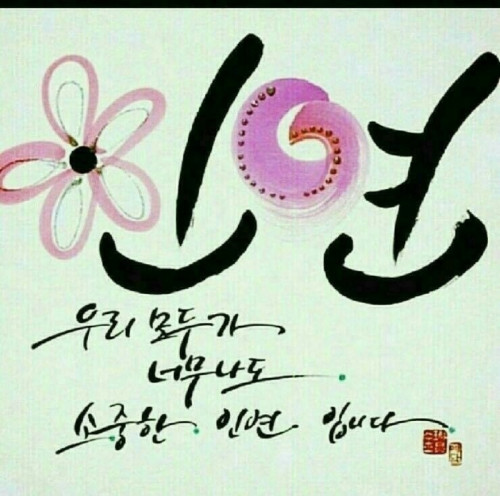 인연
우리 모두가
너무나도
소중한 인연 입니다